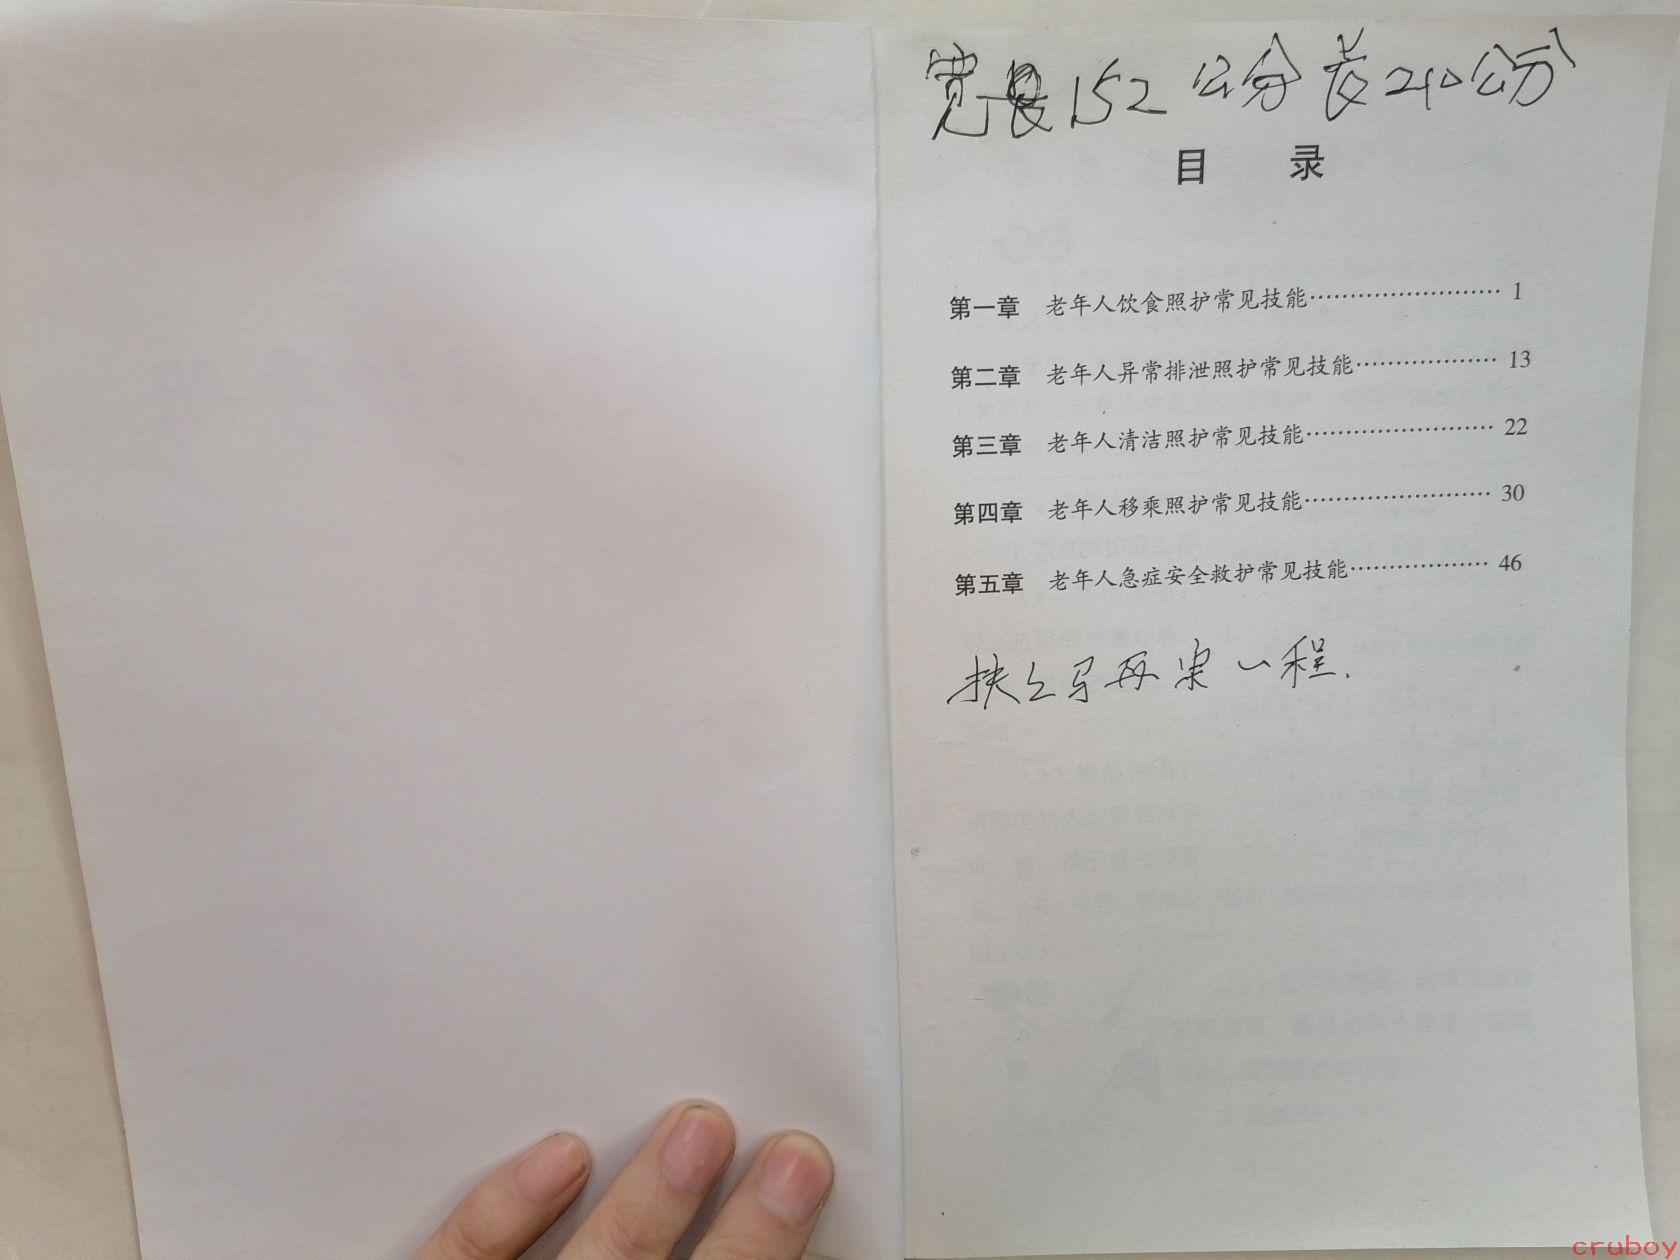 宽 152 公分 长 210 公分
目 录
第一章 老年人饮食照护常见技能…………………… 1
第二章 老年人异常排泄照护常见技能……………… 13
第三章 老年人清洁照护常见技能…………………… 22
第四章 老年人移乘照护常见技能…………………… 30
第五章 老年人急症安全救护常见技能……………… 46
扶上马再送一程.
cruboy